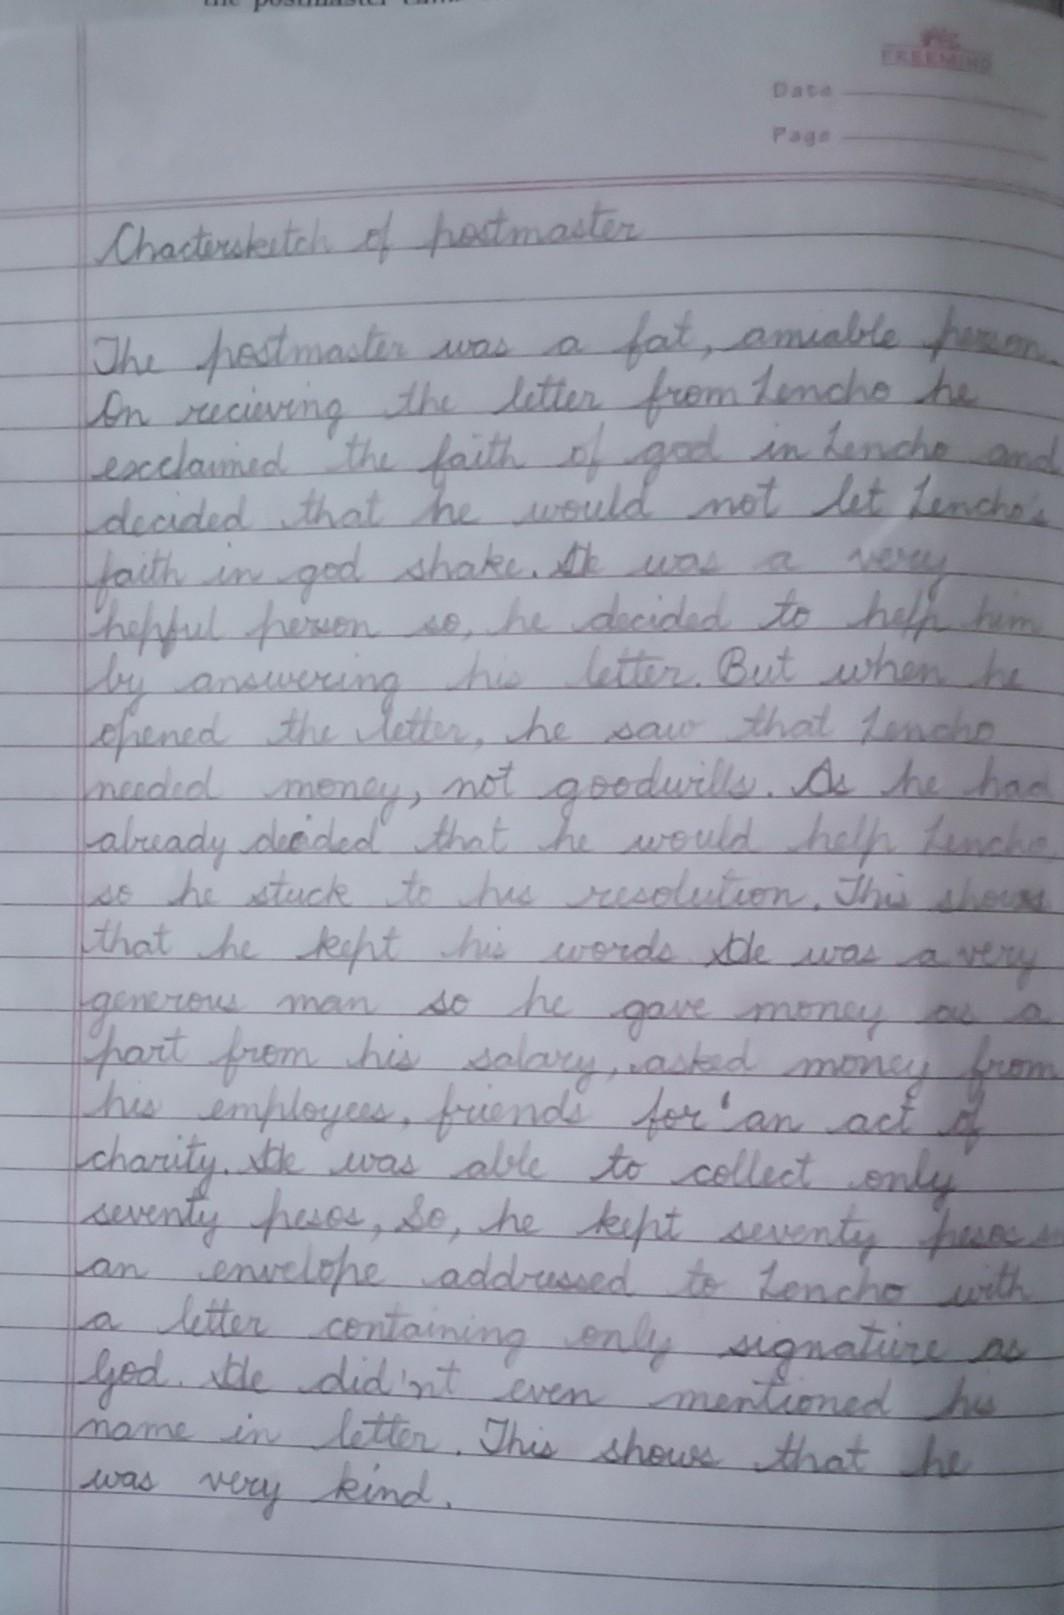 the postmaster
FREEMIND
Date
Page
Chactersketch of postmaster
The postmaster was a fat, amiable person
On recieving the letter from Lencho he
exclaimed the faith of god in Lencho and
decided that he would not let Lencho's
faith in god shake. He was a very
helpful person so, he decided to help him
by answering his letter. But when he
opened the letter, he saw that Lencho
needed money, not goodwills. As he had
already decided that he would help Lencho
so he stuck to his resolution. This shows
that he kept his words He was a very
generous man so he gave money as a
part from his salary, asked money from
his employees, friends for 'an act of
charity. He was able to collect only
seventy pesos, So, he kept seventy pesos
an envelope addressed to Lencho with
a letter containing only signature as
God. He did'nt even mentioned his
name in letter. This shows that he
was very kind.